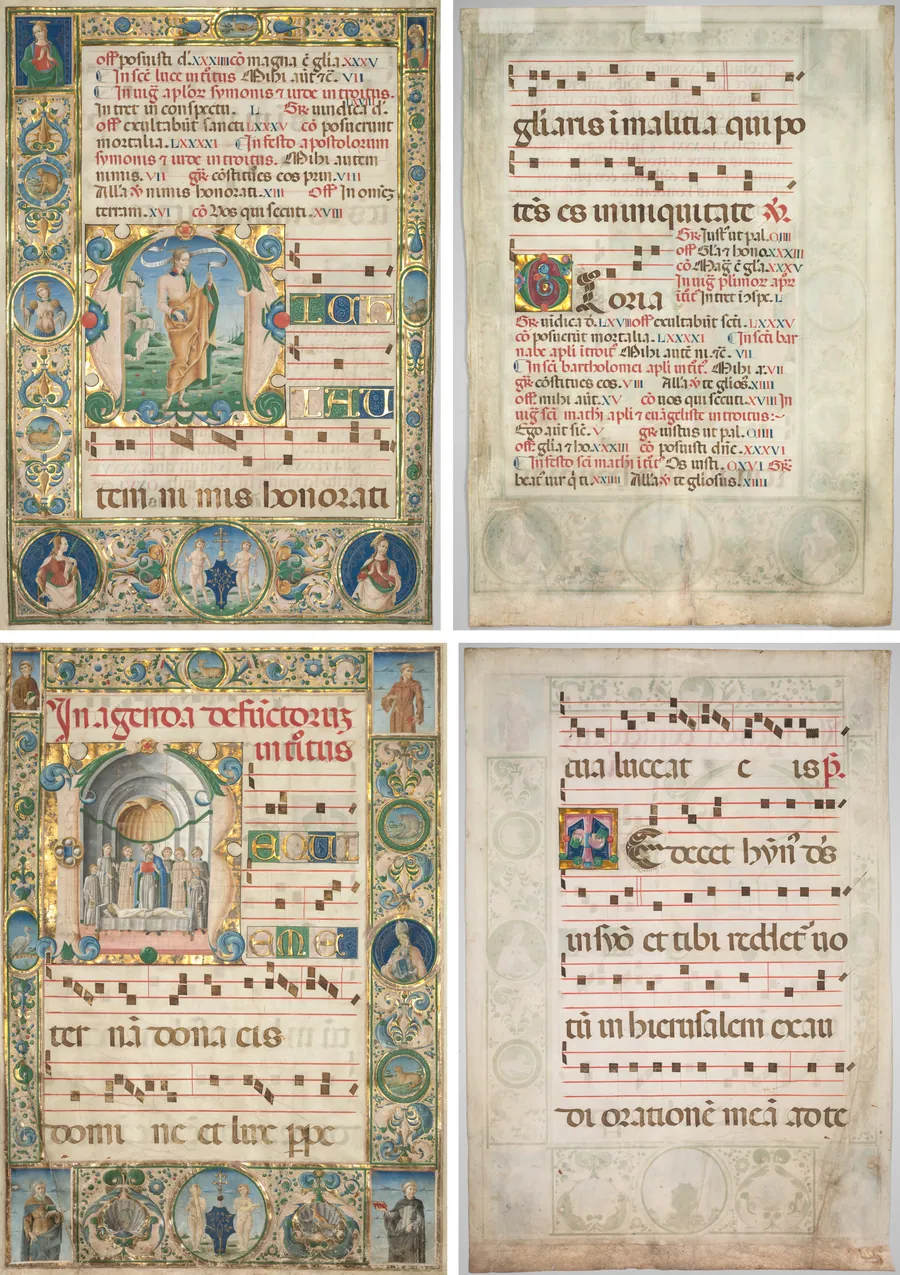 off posuisti d. xxxiiii cō magna ē glīa xxxv
In scē luce intitus Mihi aūt ⁊c̄. VII
In uig̅ aplor symonis ⁊ iude introitus.
Intret in conspectu. L Gr uindica d. LXVIII
off exultabūt sancti LXXXV cō posuerunt
mortalia. LXXXXI In festo apostolorum
symonis ⁊ iude introitus. Mihi autem
nimis. VII gr cōstitues eos prin. VIII
Alla ℣ nimis honorati. XIII Off In omnē
terram. XVI cō Vos qui secuti. XVIII
MICH
I AU
tem ni mis honorati
gliaris i malicia qui po
tēs es in iniquitate ℣.
Gr Iust ut pal. CIIII
off Glīa ⁊ hono XXXIII
cō Mag̅ ē glīa. XXXV
In uig̅ plimor apr
itūt Intret i ɔspc. L
Gloria
Gr uīdica d. LXVIII off exultabūt scti. LXXXV
cō posuerūt mortalia. LXXXXI In sci bar
nabe apli itroit Mihi autē ni. ⁊c̄. VII
In sci bartholomei apli itit. Mihi a. VII
gr cōstitues eos. VIII Alla ℣ te glios. XIIII
off mihi aūt. XV cō uos qui secuti. XVIII In
uig̅ sci mathi apli ⁊ euāgeliste introitus:~
Ego aūt sic̄. V gr iustus ut pal. CIIII
off glīa ⁊ ho. XXXIII cō posuisti dn̄e. XXXVI
In festo sci mathi itit Os iusti. CXVI Gr
beat uir q̄ ti. XXIIII Alla ℣ te gliosus. XIIII
In agenda defunctorum
intitus
REQUI
EM E
ter nā dona eis
domi ne et lux ppe
tua luceat e is p̄.
TE decet hȳn̄ ds
in syō et tibi reddet uo
tū in hierusalem exau
di orationē meā ad te